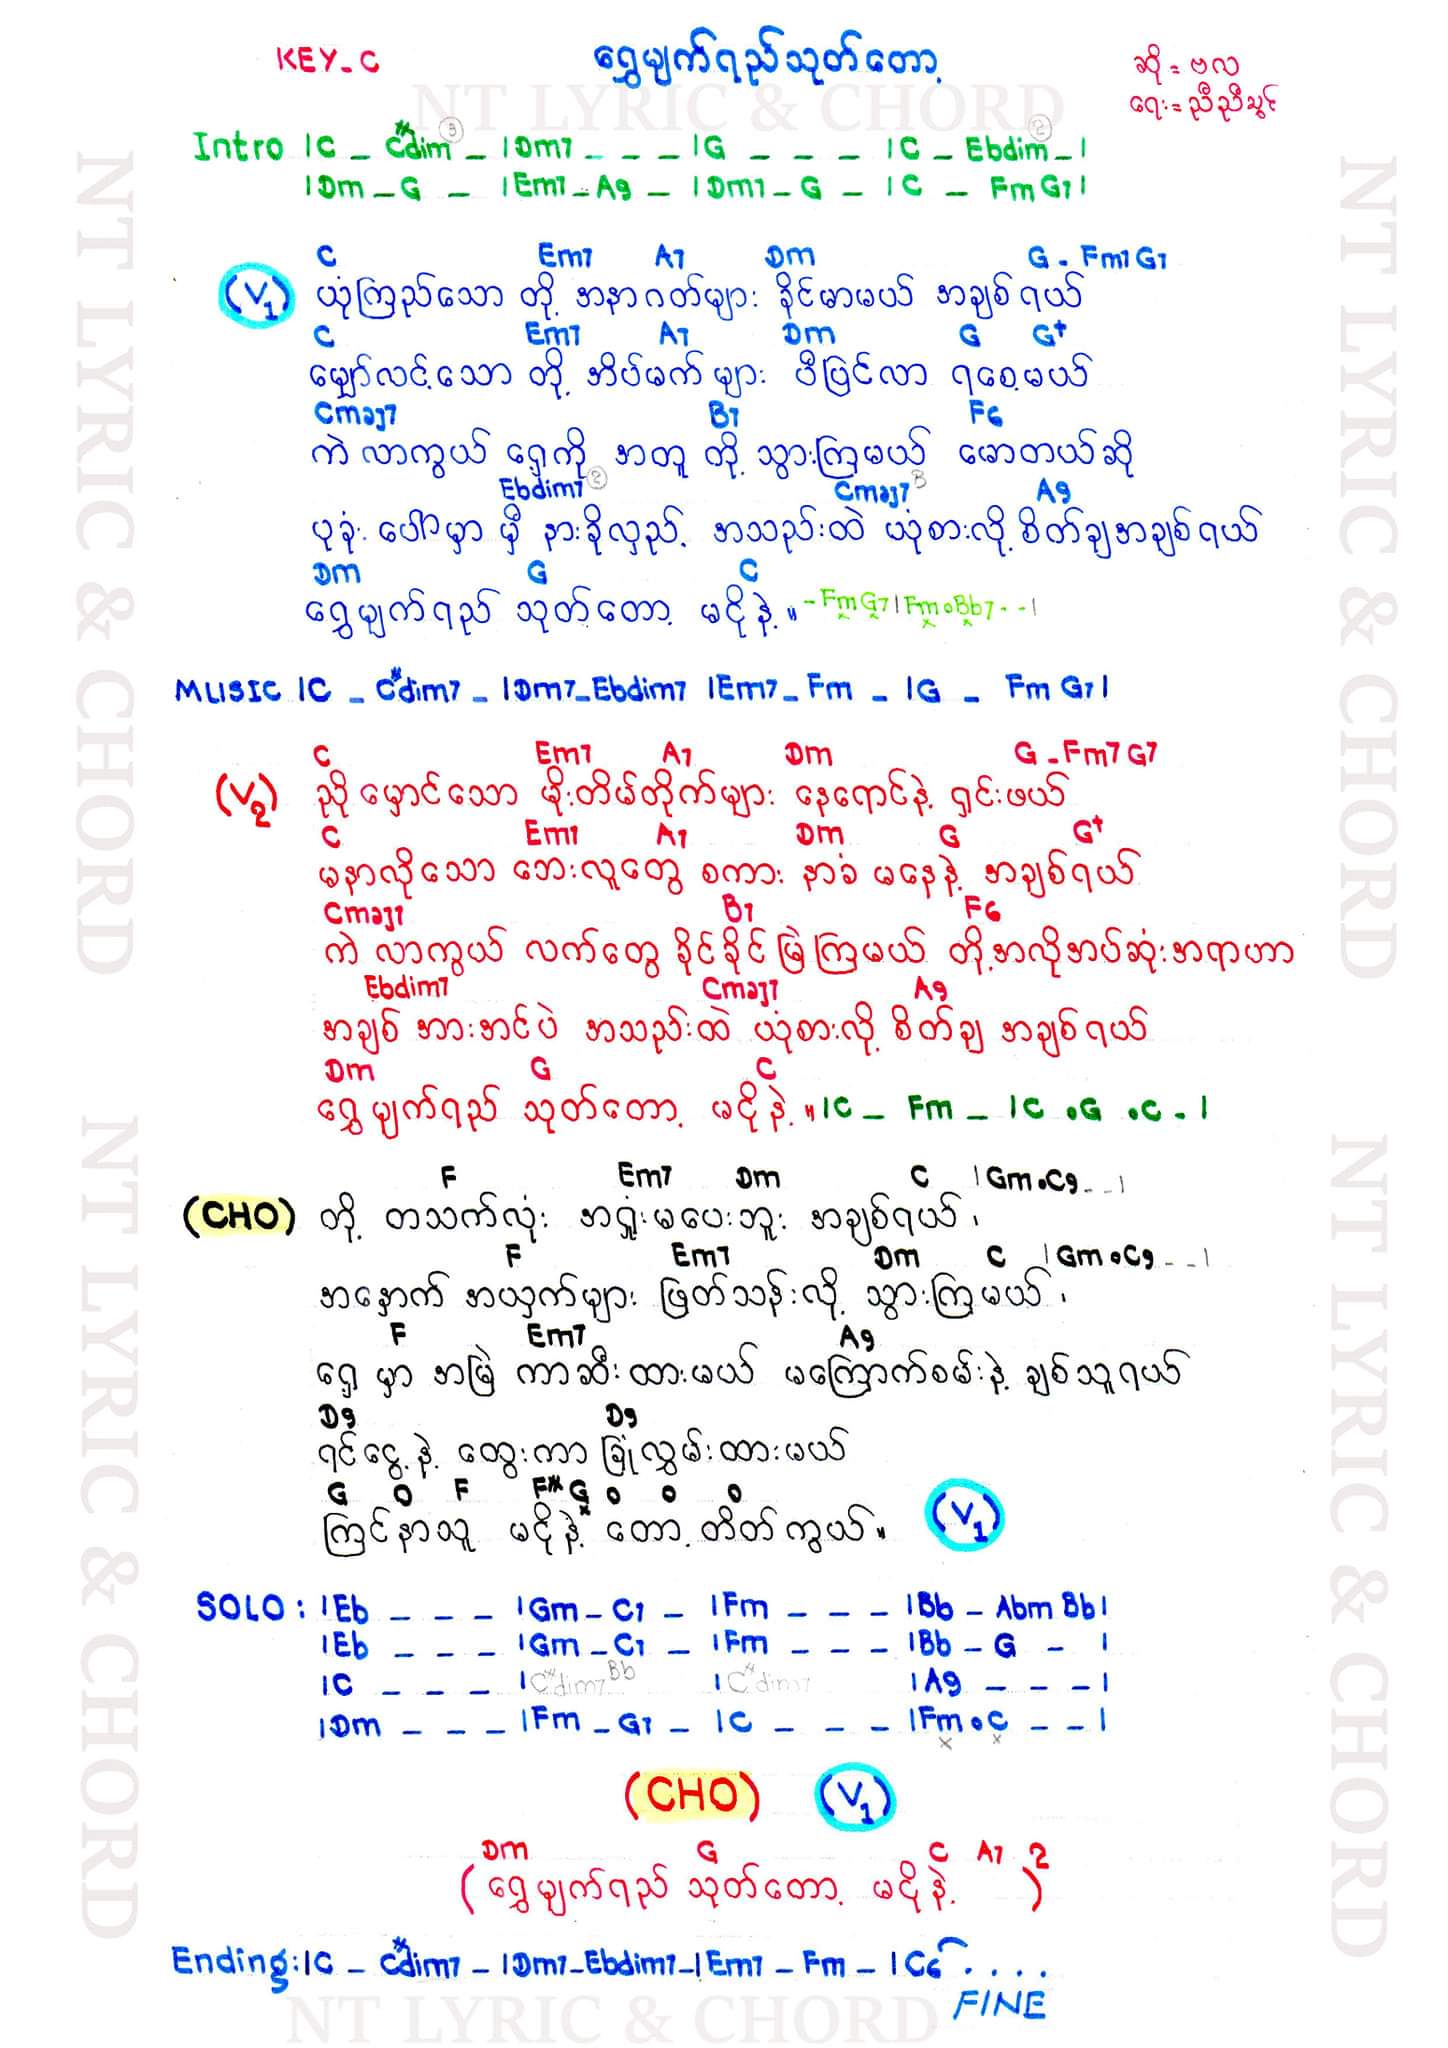 KEY - C
ရွှေမျက်ရည်သုတ်တော့
ဆို = ဗလ
ရေး = ညီညီသွင်
NT LYRIC & CHORD
Intro |C _ C#dim ③ _ |Dm7 _ _ _ |G _ _ _ |C _ Ebdim ② _ |
|Dm _ G _ |Em7 _ A9 _ |Dm7 _ G _ |C _ Fm G7|
C Em7 A7 Dm G - Fm7 G7
(V1) ယုံကြည်သော တို့ အနာဂတ်များ ခိုင်မာမယ် အချစ်ရယ်
C Em7 A7 Dm G G+
မျှော်လင့်သော တို့ အိပ်မက်များ ပီပြင်လာ ရစေ့မယ်
Cmaj7 B7 F6
ကဲ လာကွယ် ရှေ့ကို အတူ တို့ သွားကြမယ် မောတယ်ဆို
Ebdim7 ② Cmaj7 B A9
ပုခုံး ပေါ်မှာ မှီ နားခိုလှည့် အသည်းထဲ ယုံစားလို့ စိတ်ချအချစ်ရယ်
Dm G C
ရွှေမျက်ရည် သုတ်တော့ မငိုနဲ့ ။ - Fm G7 | Fm o Bb7 - - |
MUSIC |C _ C#dim7 _ |Dm7 _ Ebdim7 |Em7 _ Fm _ |G _ Fm G7|
C Em7 A7 Dm G - Fm7 G7
(V2) ညို့မှောင်သော မိုးတိမ်တိုက်များ နေရောင်နဲ့ ရှင်းဖယ်
C Em7 A7 Dm G G+
မနာလိုသော ဘေးလူတွေ စကား နာခံ မနေနဲ့ အချစ်ရယ်
Cmaj7 B7 F6
ကဲ လာကွယ် လက်တွေ ခိုင်ခိုင် မြဲကြမယ် တို့အလိုအပ်ဆုံးအရာဟာ
Ebdim7 Cmaj7 A9
အချစ် အားအင်ပဲ အသည်းထဲ ယုံစားလို့ စိတ်ချ အချစ်ရယ်
Dm G C
ရွှေမျက်ရည် သုတ်တော့ မငိုနဲ့ ။ |C _ Fm _ |C o G o C - |
F Em7 Dm C |Gm o C9 _ _ |
(CHO) တို့ တသက်လုံး အရှုံးမပေးဘူး အချစ်ရယ် ၊
F Em7 Dm C |Gm o C9 _ _ |
အနှောက် အယှက်များ ဖြတ်သန်းလို့ သွားကြမယ် ၊
F Em7 A9
ရှေ့မှာ အမြဲ ကာဆီးထားမယ် မကြောက်စမ်းနဲ့ ချစ်သူရယ်
D9 D9
ရင်ငွေ့နဲ့ ထွေးကာ ခြုံလွှမ်းထားမယ်
G O F F# G o o o
ကြင်နာသူ မငိုနဲ့ တော့ တိတ်ကွယ် ။ (V1)
SOLO : |Eb _ _ _ |Gm _ C7 _ |Fm _ _ _ |Bb _ Abm Bb|
|Eb _ _ _ |Gm _ C7 _ |Fm _ _ _ |Bb _ G _ |
|C _ _ _ |C#dim7 Bb |C#dim7 |A9 _ _ _ |
|Dm _ _ _ |Fm _ G7 _ |C _ _ _ |Fm o C _ _ |
(CHO) (V1)
Dm G C A7
(ရွှေမျက်ရည် သုတ်တော့ မငိုနဲ့ )2
Ending: |C _ C#dim7 _ |Dm7 _ Ebdim7 _ |Em7 _ Fm _ |C6 . . . .
FINE
NT LYRIC & CHORD
NT LYRIC & CHORD
NT LYRIC & CHORD
NT LYRIC & CHORD
NT LYRIC & CHORD